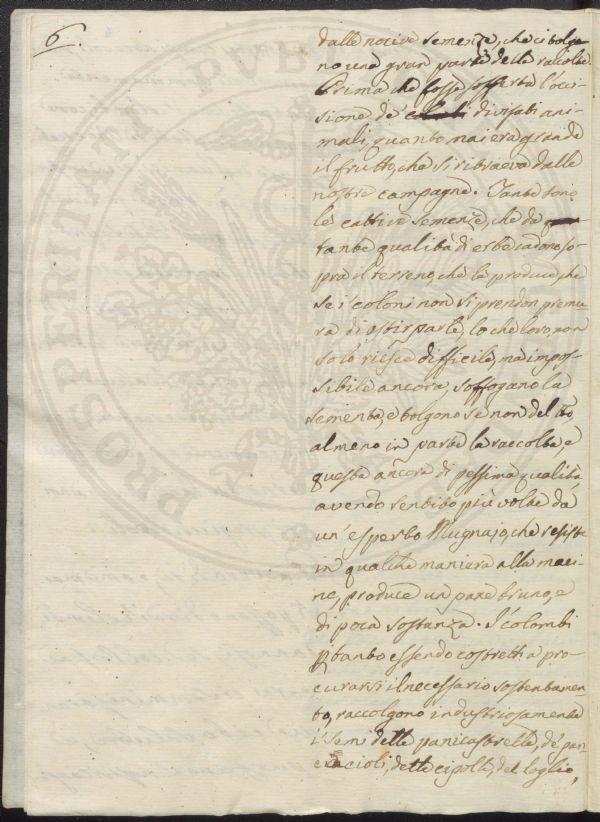 6.
dalle nocive semenze, che ci tolgo
no una gran parte delle raccolte
Prima che fosse sofferta l'occi
sione de' divisati ani
mali, quanto mai era grande
il frutto, che si ritraeva dalle
nostre campagne. Tante sono
le cattive semenze, che da
tante qualità di erbe cadono so
pra il terreno, che le produce, che
se i coloni non si prendon premu
ra di estirparle, lo che loro, non
solo riesce difficile, ma impos
sibile ancora, soffogano la
sementa, e tolgono se non del tto,
almeno in parte la raccolta, e
questa ancora di pessima qualità
avendo sentito più volte da
un' esperto Mugnajo, che resiste
in qualche maniera alla maci
ne, produce un pane bruno, e
di poca sostanza. I colombi
tanto essendo costretti a pro
curarsi il necessario sostentamen
to, raccolgono industriosamente
i semi delle panicastrelle, de'
delle cipolle, del loglio,
PROSPERITATI PVB